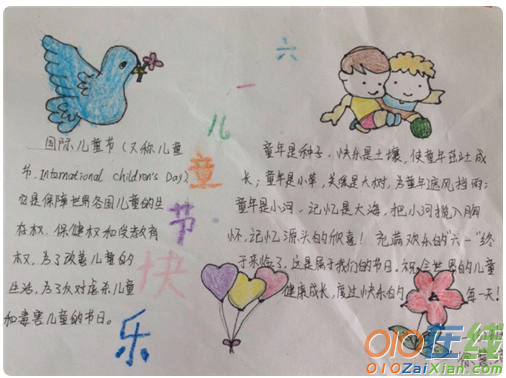 六
一
儿
童
节
快
乐
国际儿童节(又称儿童
节,International children's Day)
它是保障世界各国儿童的生
存权、保健权和受教育
权,为了改善儿童的
生活,为了反对虐杀儿童
和毒害儿童的节日。
童年是种子,快乐是土壤,使童年茁壮成
长;童年是小草,关怀是大树,为童年遮风挡雨;
童年是小河,记忆是大海,把小河揽入胸
怀,记忆源头的欣喜!充满欢乐的"六一"终
于来临了,这是属于我们的节日。祝全世界的儿童
健康成长,度过快乐的 每一天!
010在线
010ZaiXian.com